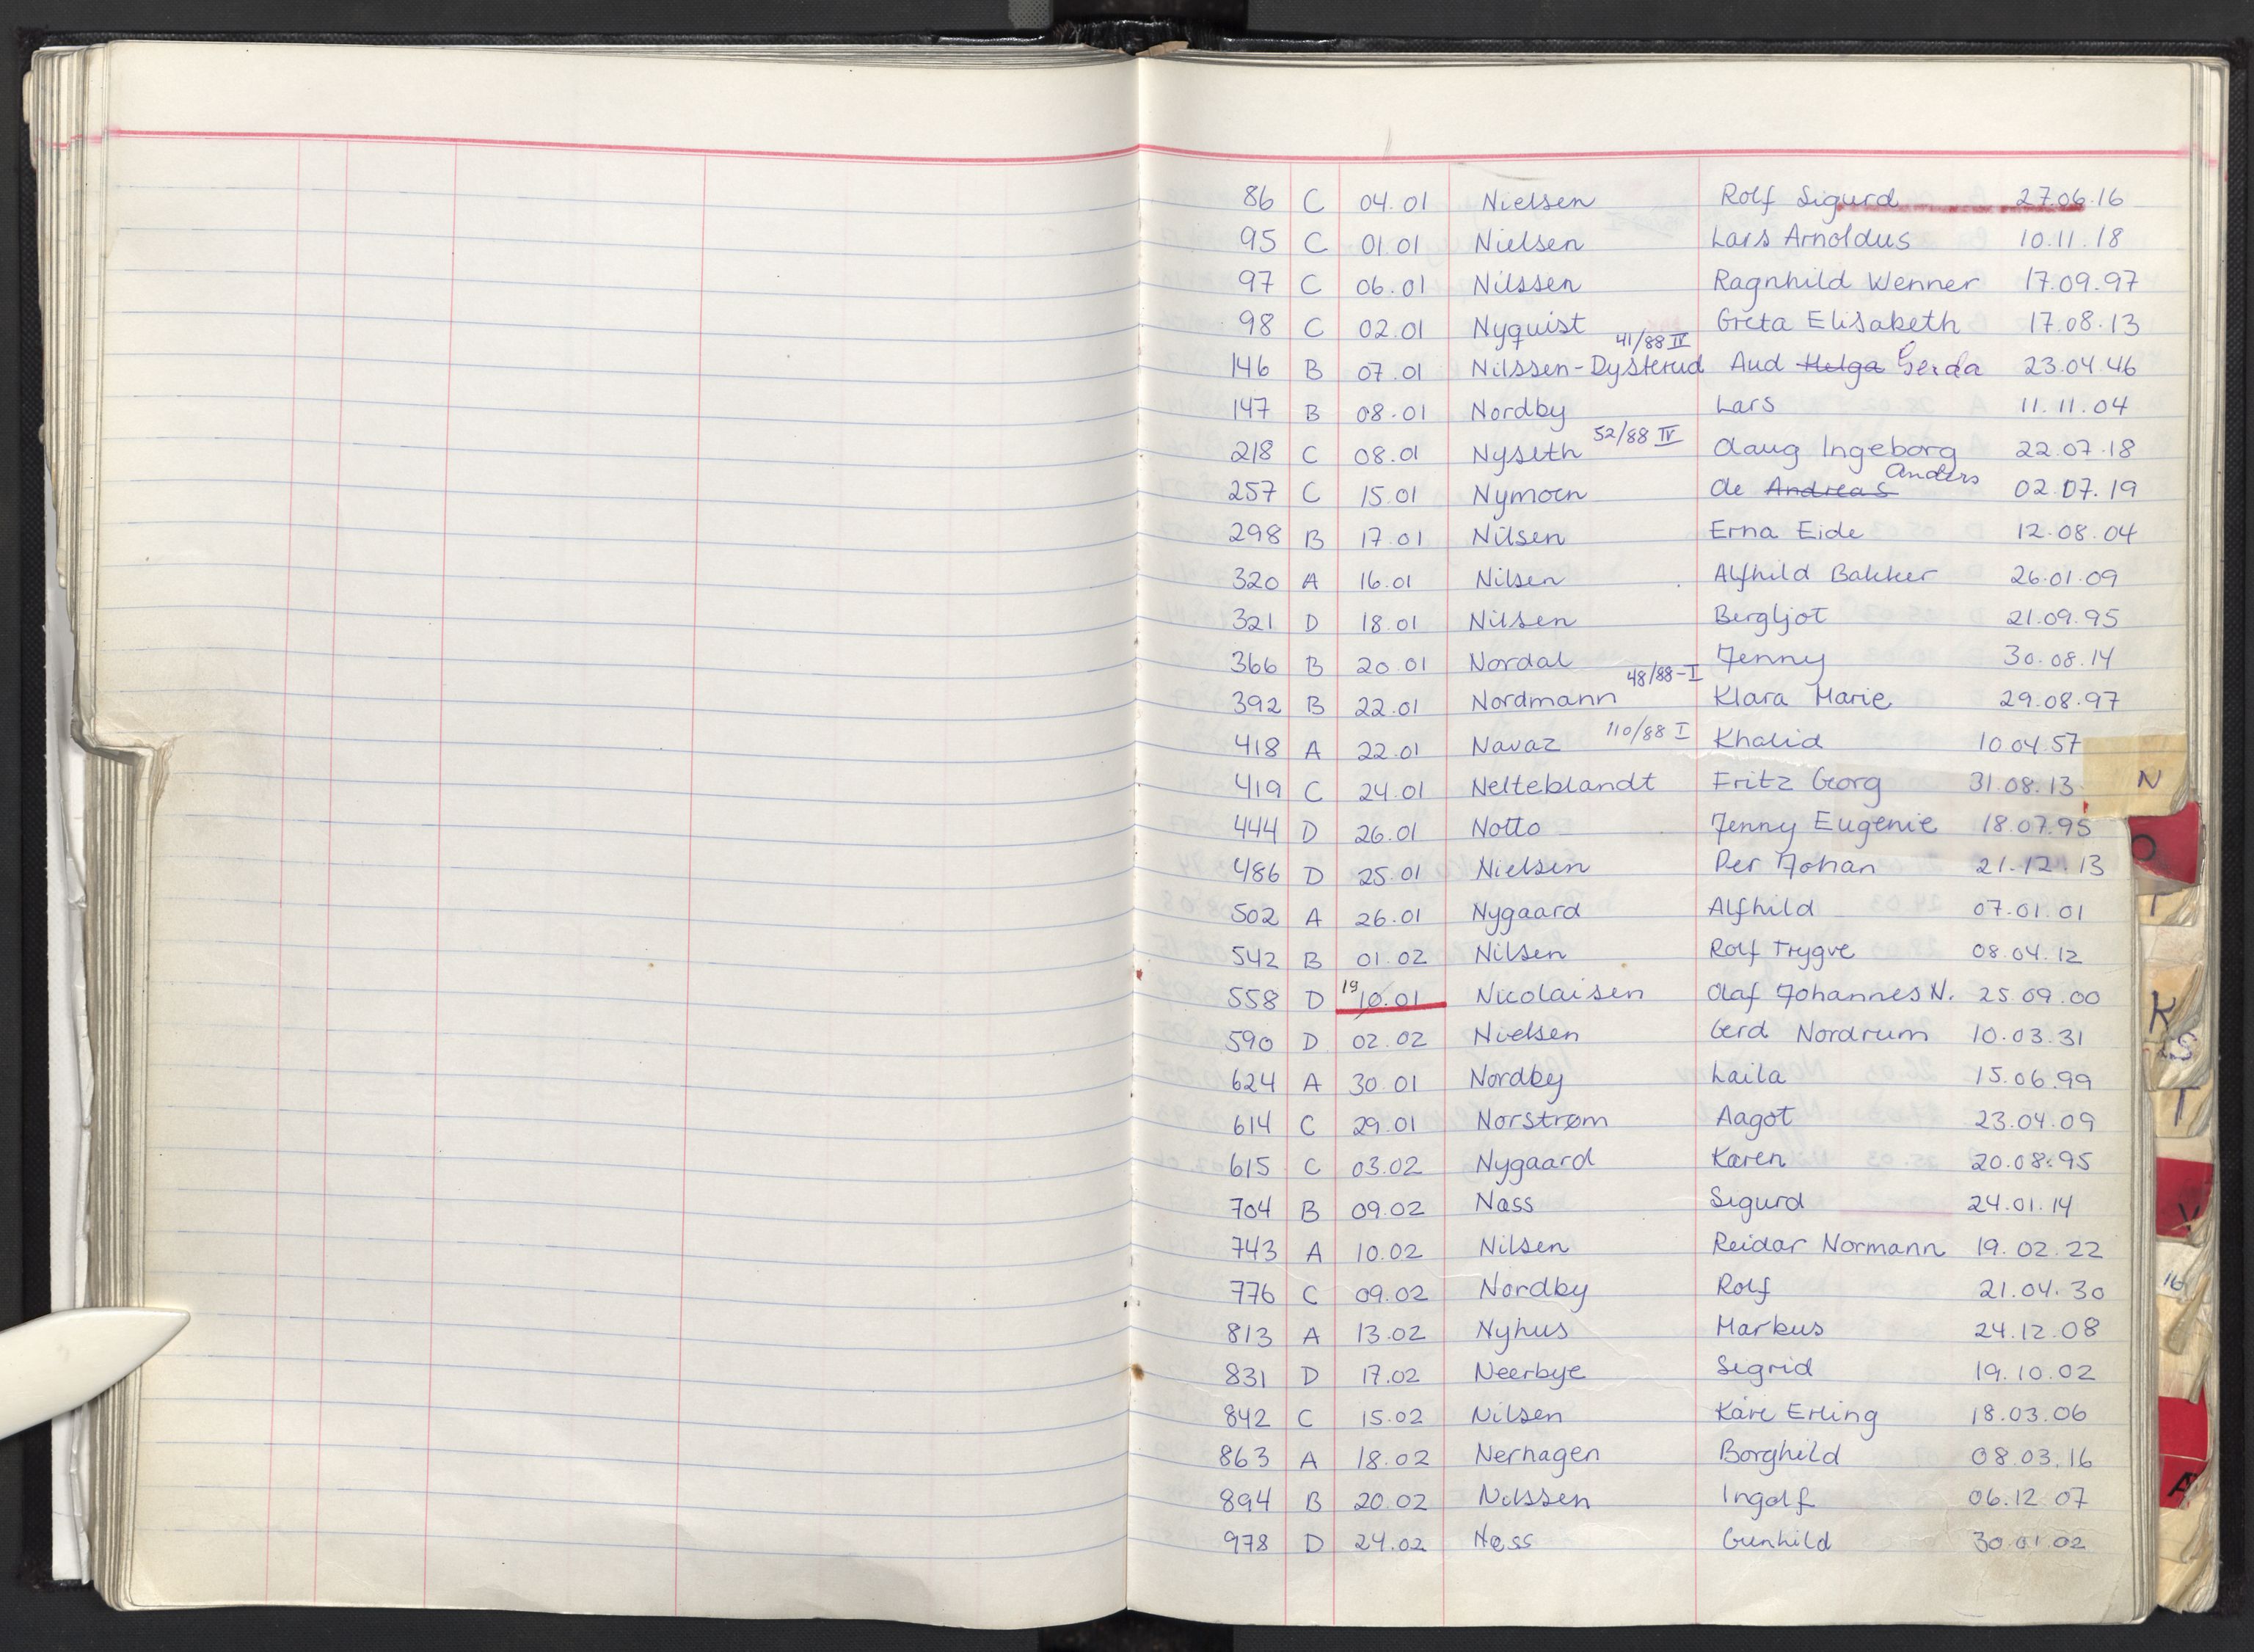 86 C 04.01 Nielsen Rolf Sigurd 27.06.16
95 C 01.01 Nielsen Lars Arnoldus 10.11.18
97 C 06.01 Nilssen Ragnhild Wenner 17.09.97
98 C 02.01 Nyquist Greta Elisabeth 17.08.13
41/88 IV
146 B 07.01 Nilssen-Dysterud Aud Helga Gerda 23.04.46
147 B 08.01 Nordby Lars 11.11.04
52/88 IV
218 C 08.01 Nyseth Olaug Ingeborg 22.07.18
Anders
257 C 15.01 Nymoen Ole Andreas 02.07.19
298 B 17.01 Nilsen Erna Eide 12.08.04
320 A 16.01 Nilsen Alfhild Bakker 26.01.09
321 D 18.01 Nilsen Bergljot 21.09.95
366 B 20.01 Nordal Jenny 30.08.14
48/88-I
392 B 22.01 Nordmann Klara Marie 29.08.97
418 A 22.01 Navaz 110/88 I Khalid 10.04.57
N
419 C 24.01 Nelteblandt Fritz Georg 31.08.13
444 D 26.01 Notto Jenny Eugenie 18.07.95
O
486 D 25.01 Nielsen Per Johan 21.12.13
502 A 26.01 Nygaard Alfhild 07.01.01
542 B 01.02 Nilsen Rolf Trygve 08.04.12
558 D 19 10.01 Nicolaisen Olaf Johannes N. 25.09.00
K
590 D 02.02 Nielsen Gerd Nordrum 10.03.31
S
624 A 30.01 Nordby Laila 15.06.99
T
614 C 29.01 Norstrøm Aagot 23.04.09
615 C 03.02 Nygaard Karen 20.08.95
704 B 09.02 Næss Sigurd 24.01.14
V
743 A 10.02 Nilsen Reidar Normann 19.02.22
776 C 09.02 Nordby Rolf 21.04.30
16
813 A 13.02 Nyhus Markus 24.12.08
831 D 17.02 Neerbye Sigrid 19.10.02
842 C 15.02 Nilsen Kåre Erling 18.03.06
863 A 18.02 Nerhagen Borghild 08.03.16
894 B 20.02 Nilssen Ingolf 06.12.07
978 D 24.02 Næss Gunhild 30.01.02